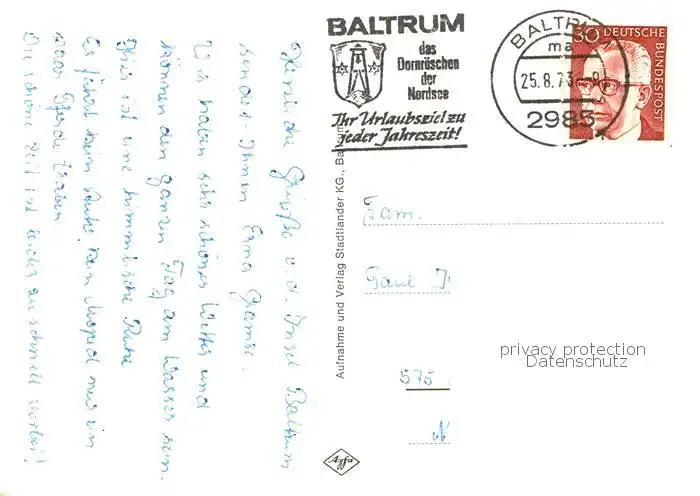 Herzliche Grüße v. d. Insel Baltrum
sendet Ihnen Erna
Wir haben sehr schönes Wetter und
können den ganzen Tag am Wasser sein.
Hier ist eine himmlische Ruhe
Es fährt kein Auto kein Moped nur ein
paar Pferde Wagen.
Die schöne Zeit ist leider zu schnell vorbei!
BALTRUM
das
Dornröschen
der
Nordsee
Ihr Urlaubsziel zu
jeder Jahreszeit!
BALTRUM
ma
25.8.73
2985
30 DEUTSCHE
BUNDESPOST
Aufnahme und Verlag Stadtlander KG., Baltrum
Fam.
Paul
575
N
privacy protection
Datenschutz
Agfa